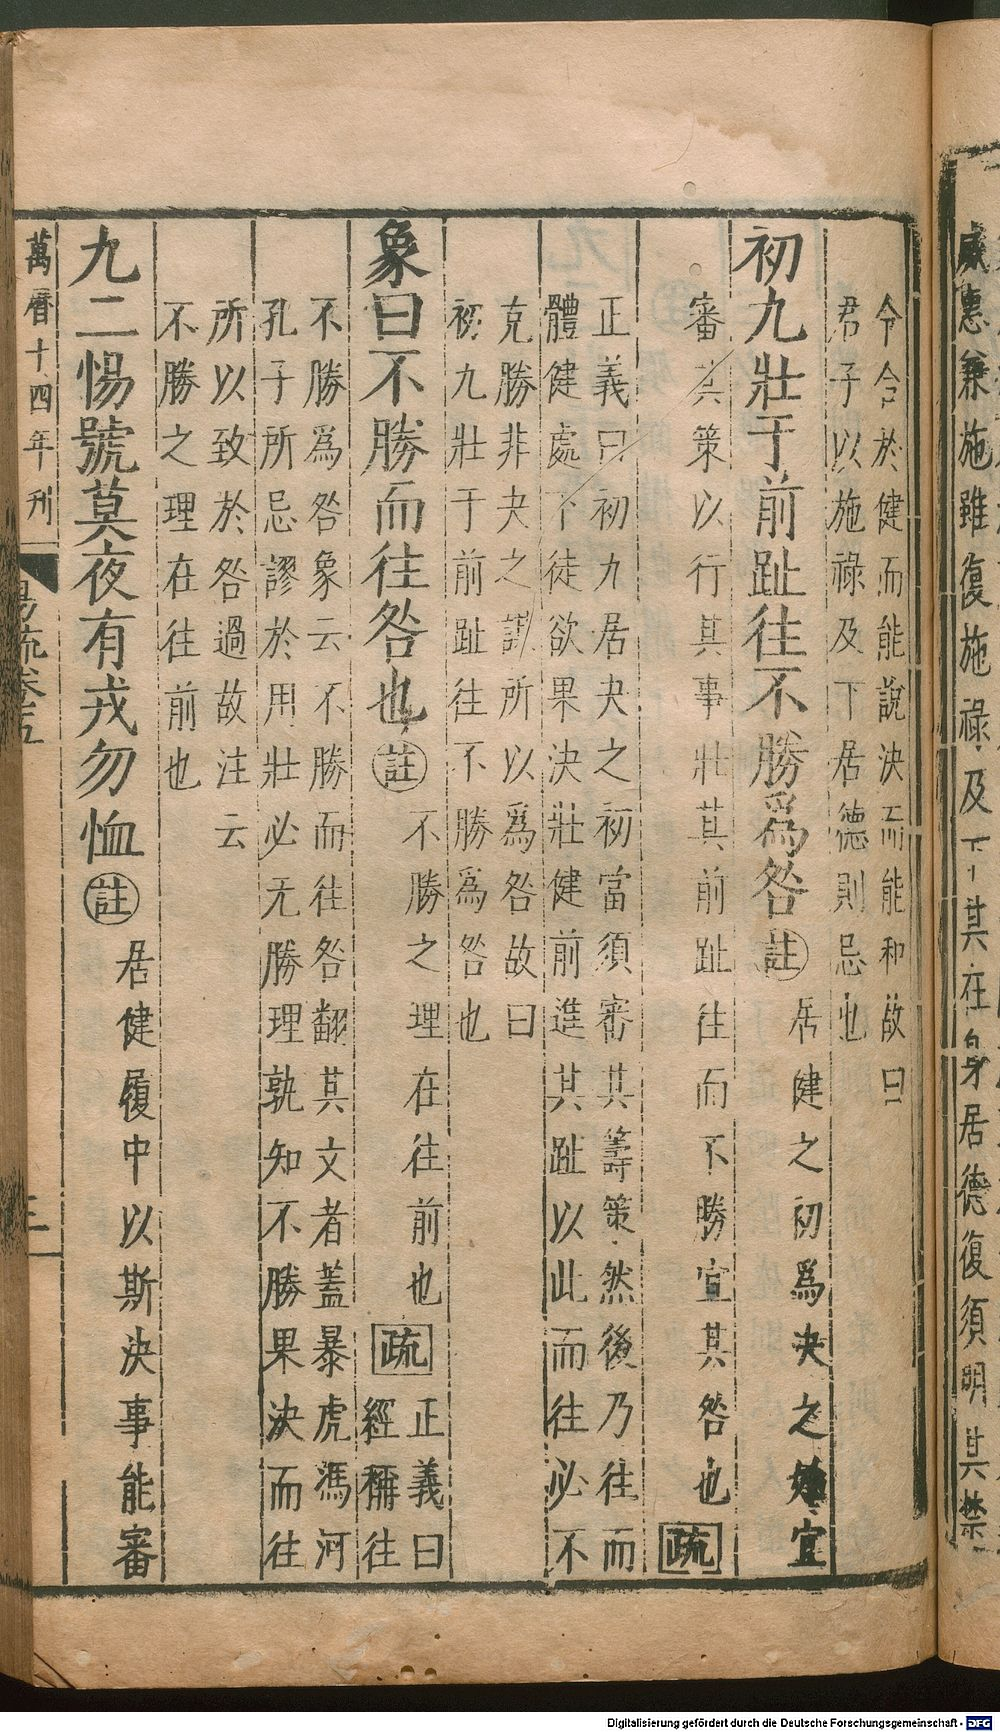 威惠兼施雖復施祿及下其在身居德復須明其禁
令合於健而能說決而能和故曰
君子以施祿及下居德則忌也
初九壯于前趾往不勝爲咎註居健之初爲決之始宜
審其策以行其事壯其前趾往而不勝宜其咎也疏
正義曰初九居夬之初當須審其籌策然後乃往而
體健處下徒欲果決壯健前進其趾以此而往必不
克勝非夬之謀所以爲咎故曰
初九壯于前趾往不勝爲咎也
象曰不勝而往咎也註不勝之理在往前也疏正義曰
經稱往
不勝爲咎象云不勝而往咎翻其文者蓋暴虎馮河
孔子所忌謬於用壯必无勝理孰知不勝果決而往
所以致於咎過故注云
不勝之理在往前也
九二惕號莫夜有戎勿恤註居健履中以斯決事能審
萬曆十四年刊
易疏卷五
三
Digitalisierung gefördert durch die Deutsche Forschungsgemeinschaft - DFG